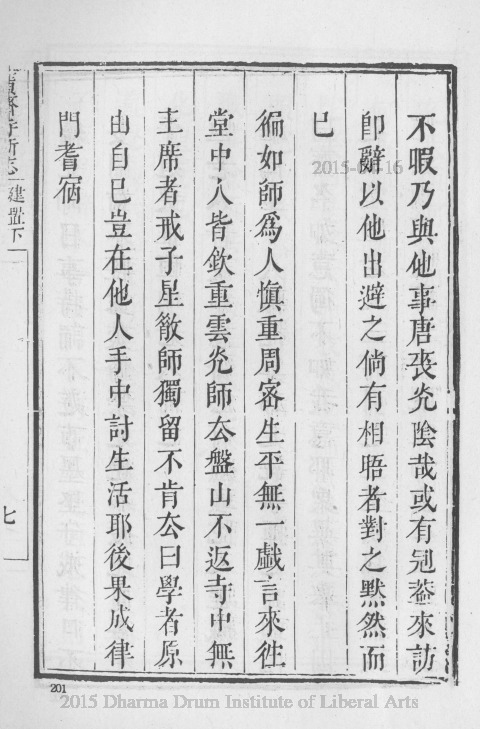 不暇乃與他事唐喪光陰哉或有冠蓋來訪
卽辭以他出避之倘有相晤者對之默然而
已
徧如師爲人愼重周密生平無一戲言來往
堂中人皆欽重雲光師去盤山不返寺中無
主席者戒子星散師獨留不肯去曰學者原
由自己豈在他人手中討生活耶後果成律
門耆宿
建置下
七
2015-04-16
201
2015 Dharma Drum Institute of Liberal Arts